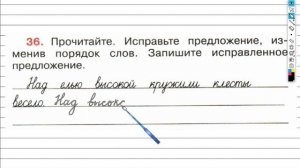 36. Прочитайте. Исправьте предложение, из-
менив порядок слов. Запишите исправленное
предложение.
Над елью высокой кружили клесты
весело. Над высок